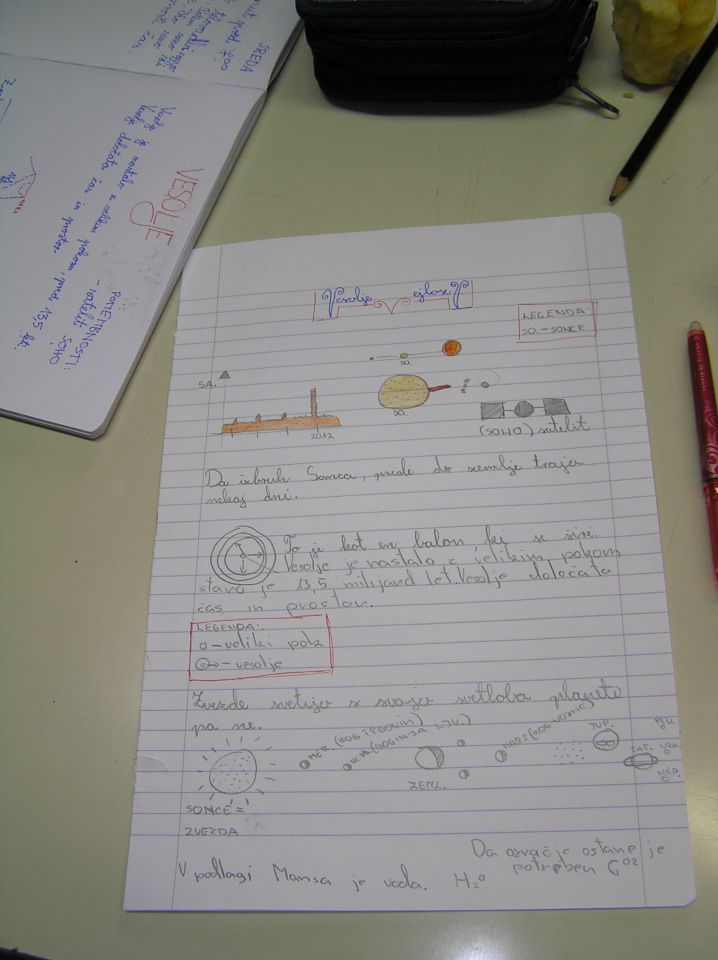 Vesolje
LEGENDA:
SO. - SONCE
SO.
SA.
SO.
2012
(SOHO) satelit
Da izbruh Sonca, pride do zemlje traja
nekaj dni.
To je kot en balon, ki se širi.
Vesolje je nastalo z velikim pokom
staro je 13,5 milijard let. Vesolje določata
čas in prostor.
LEGENDA:
o - veliki pok
- vesolje
Zvezde svetijo s svojo svetloba planeti
pa ne.
MER. (BOG TRGOVIN)
(BOGINJA LJU.)
MARS (BOG VOJNE)
JUP.
PLU.
SAT.
URA.
NEP.
ZEM.
SONCE =
ZVEZDA
Da ozračje ostane je
potreben CO2
V podlagi Marsa je voda. H2O
VESOLJE
Vesolje je nastalo z velikim pokom, pred 13,5
čas in prostor.
POMEMBNOSTI:
- satelit SOHO
SREDA